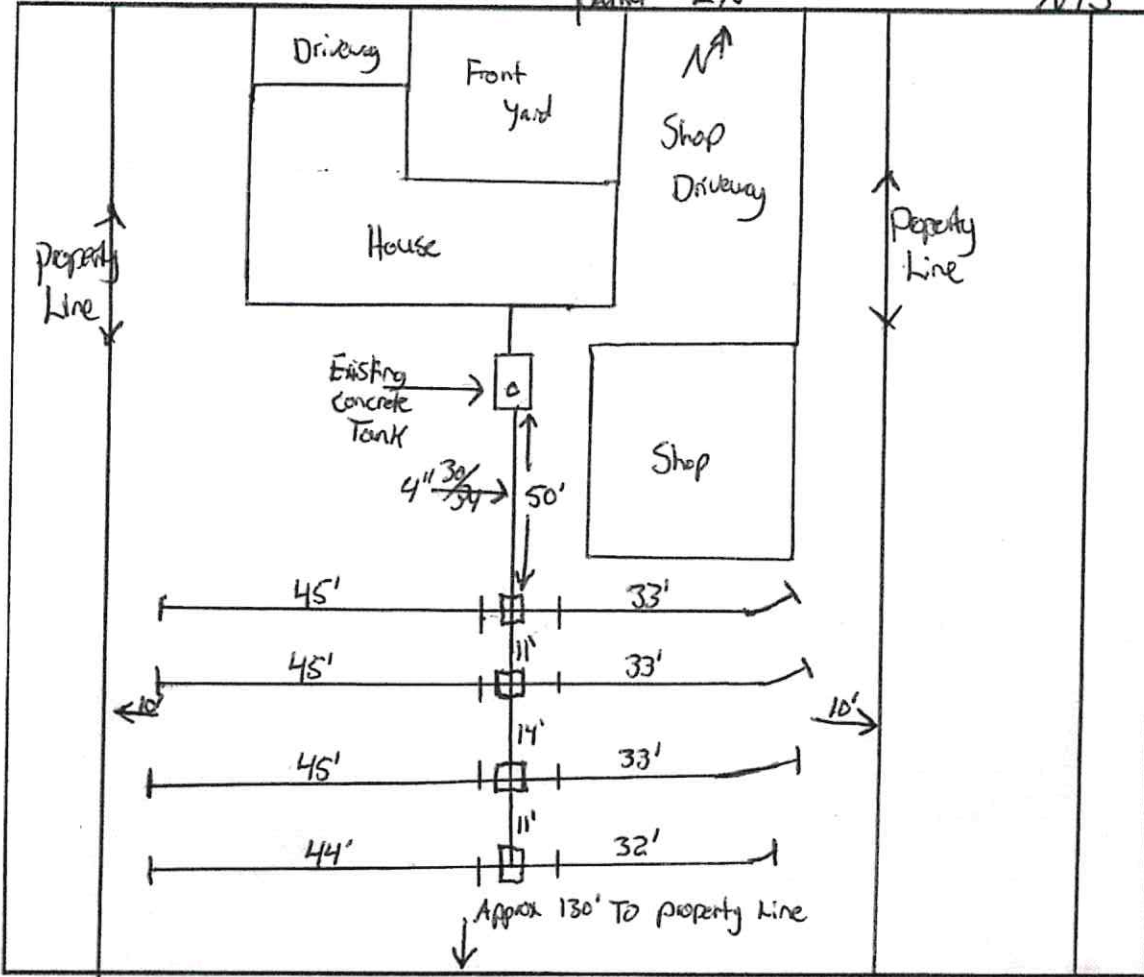 NTS
Driveway
Front
Yard
N
Shop
Driveway
House
Property
Line
Poperty
Line
Existing
Concrete
Tank
Shop
4" 30/34
50'
45'
33'
11'
45'
33'
10'
10'
14'
45'
33'
11'
44'
32'
Approx 130' To property Line